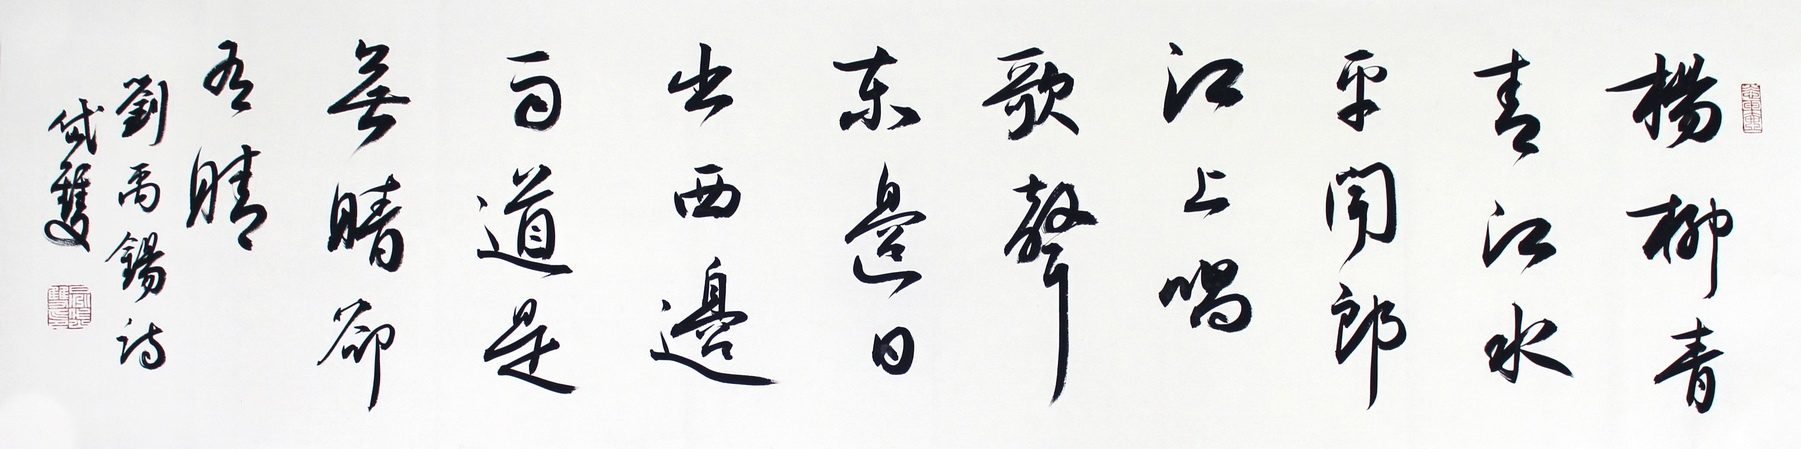 楊柳青
青江水
平聞郎
江上唱
歌聲
東邊日
出西邊
雨道是
無晴卻
有晴
劉禹錫詩
岱雙